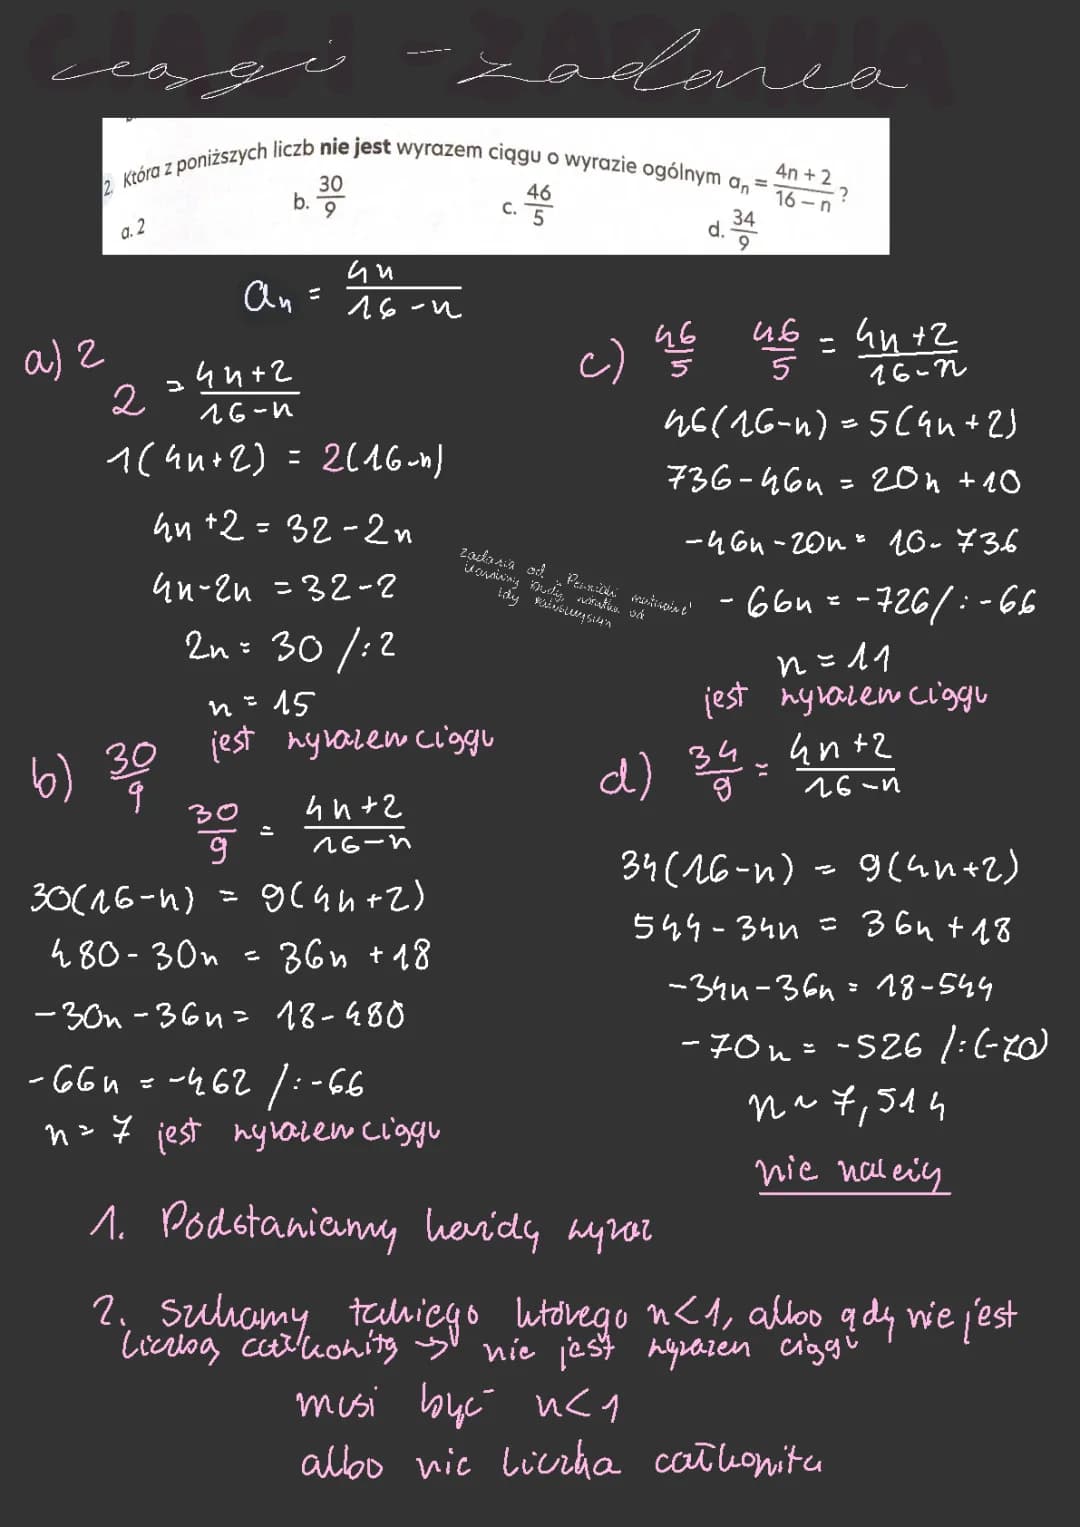 ciągi - zadania
2. Która z poniższych liczb nie jest wyrazem ciągu o wyrazie ogólnym aₙ = (4n + 2)/(16 – n) ?
a. 2 b. 30/9 c. 46/5 d. 34/9
aₙ = 4n/(16-n)
a) 2
2 = (4n+2)/(16-n)
1(4n+2) = 2(16-n)
4n+2 = 32-2n
4n-2n = 32-2
2n = 30 /:2
n = 15
jest wyrazem ciągu
b) 30/9
30/9 = (4n+2)/(16-n)
30(16-n) = 9(4n+2)
480-30n = 36n+18
-30n-36n = 18-480
-66n = -462 /:-66
n = 7 jest wyrazem ciągu
zadania od
c) 46/5 46/5 = (4n+2)/(16-n)
46(16-n) = 5(4n+2)
736-46n = 20n+10
-46n-20n = 10-736
-66n = -726/:-66
n = 11
jest wyrazem ciągu
d) 34/9 = (4n+2)/(16-n)
34(16-n) = 9(4n+2)
544-34n = 36n+18
-34n-36n = 18-544
-70n = -526 /:(-70)
n ~ 7,514
nie należy
1. Podstawiamy każdy wyraz
2. Szukamy takiego którego n<1, albo gdy nie jest
liczbą całkowitą → nie jest wyrazem ciągu
musi być n<1
albo nie liczba całkowita